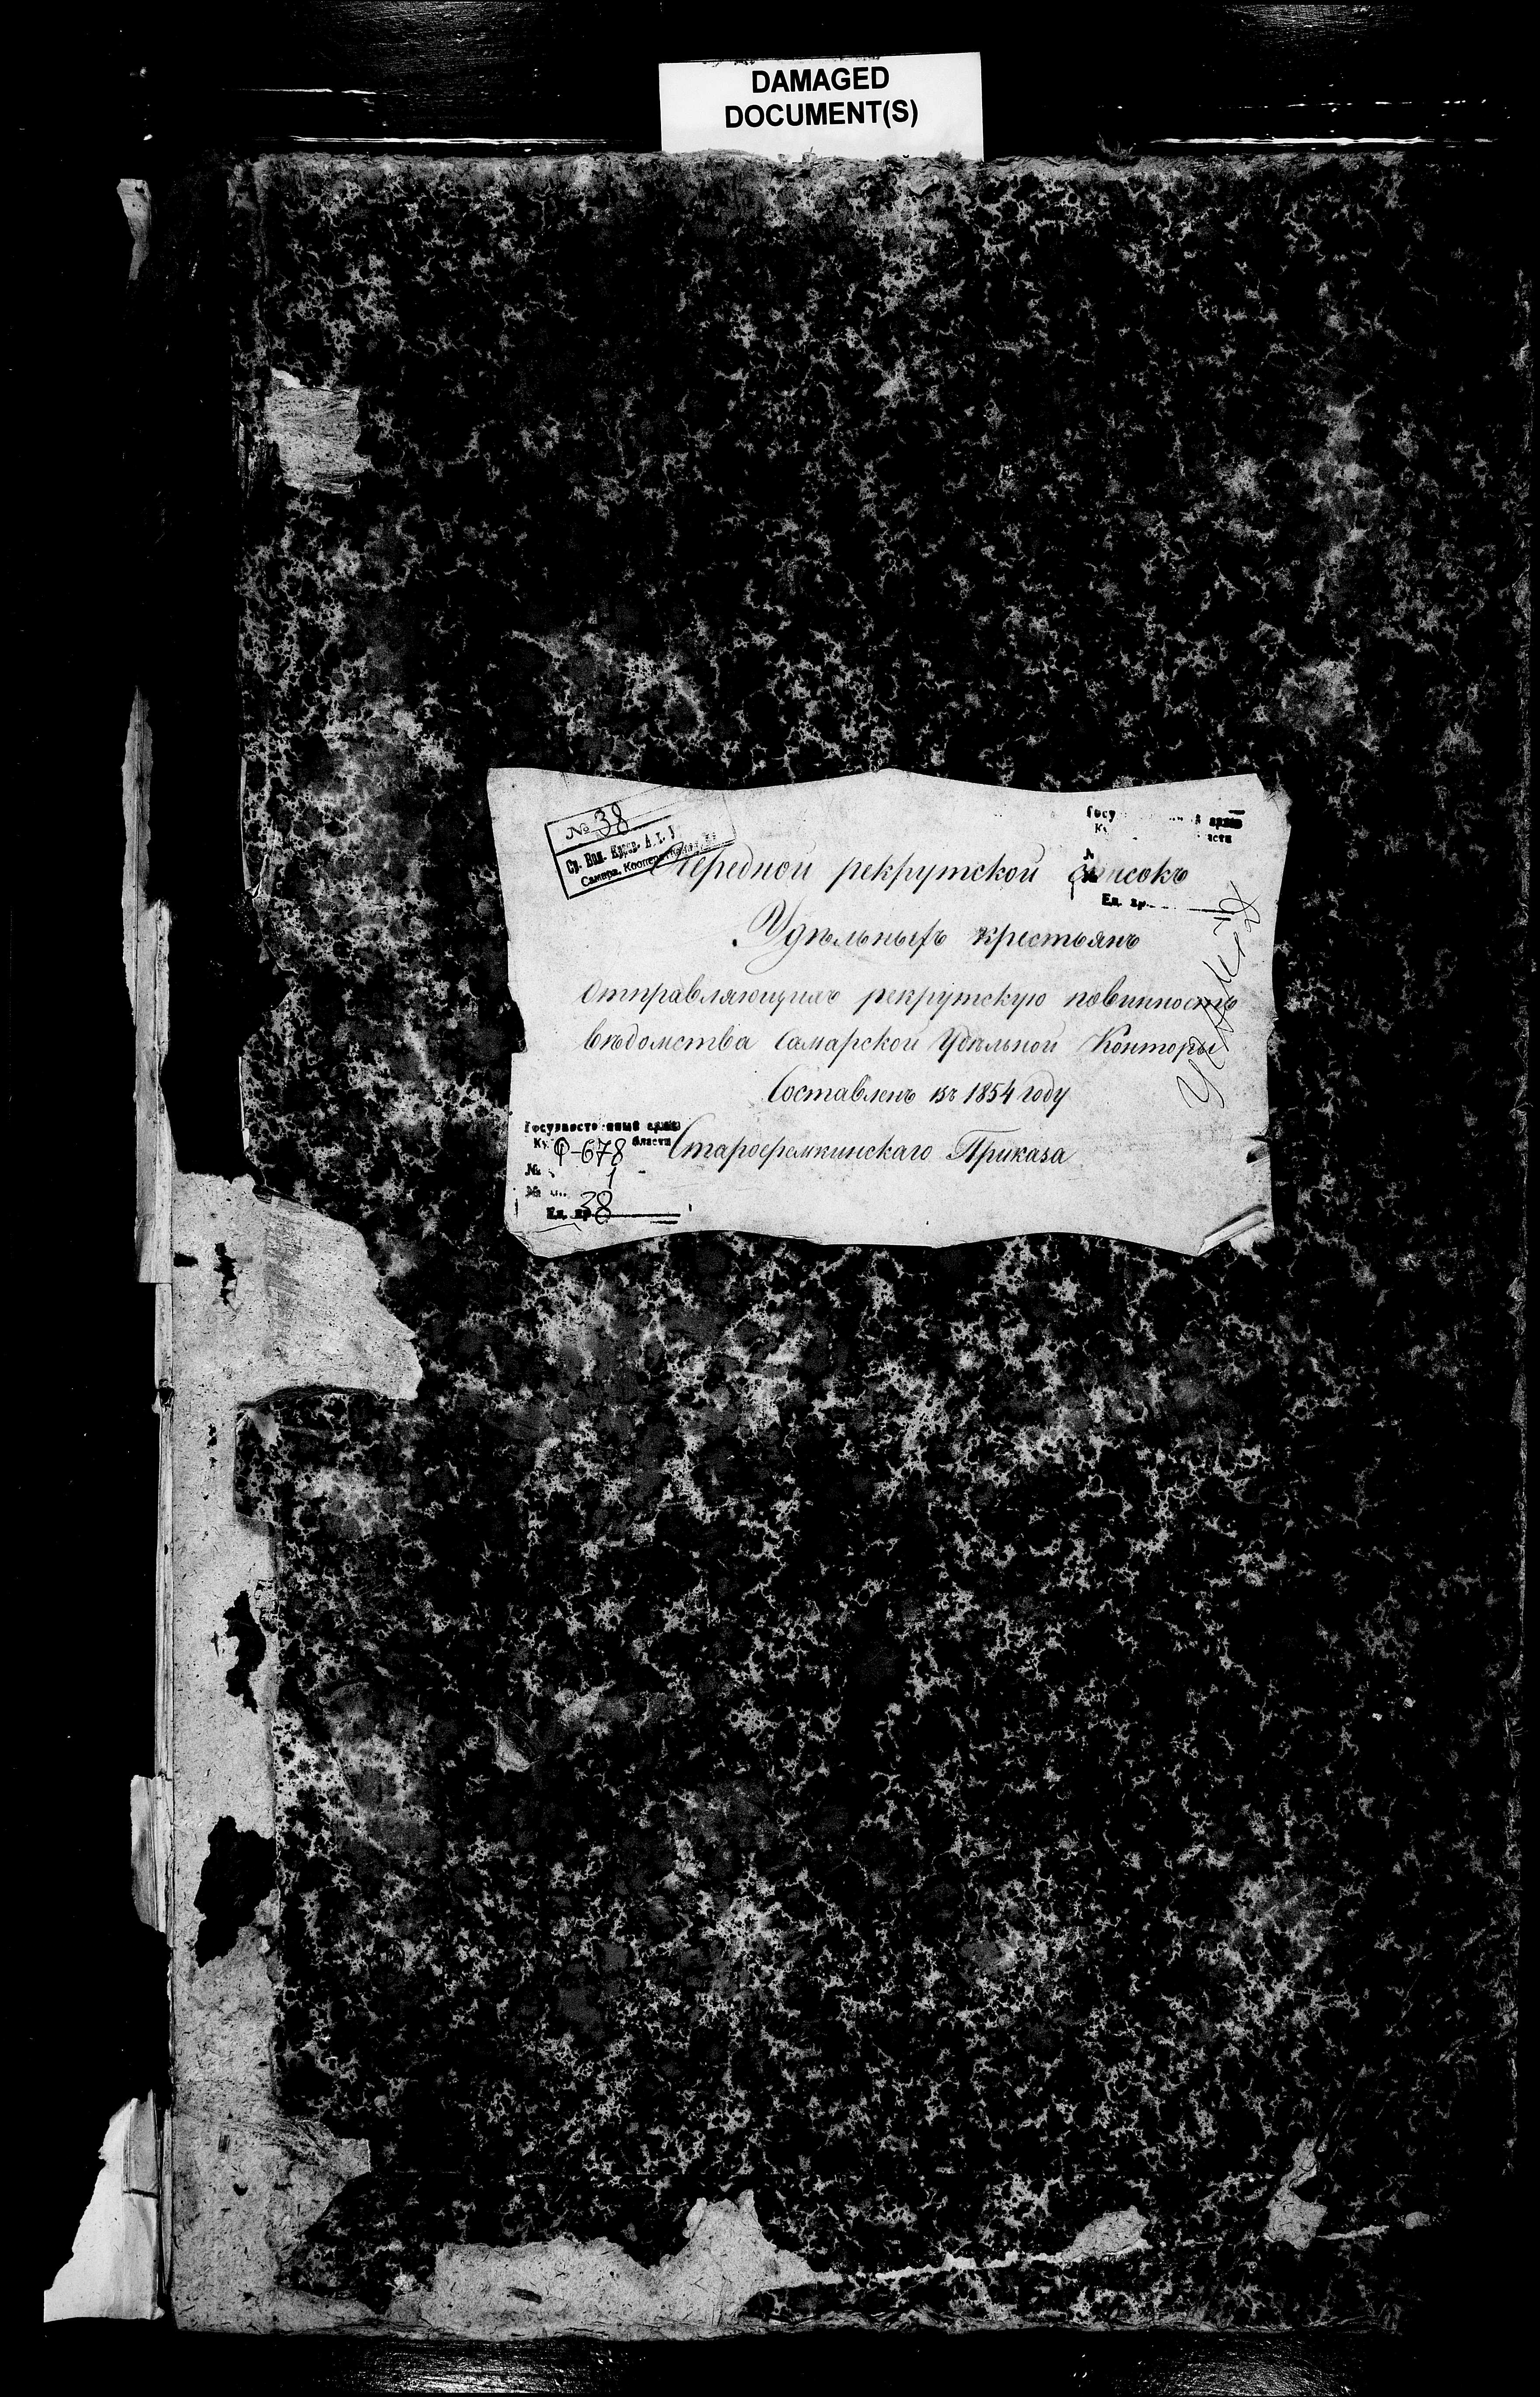 DAMAGED
DOCUMENT(S)
№ 38
Ср. Вол. Краев. А. У.
Самара, Кооперативная
Очередной рекрутской списокъ
Удѣльныхъ крестьянъ
отправляющихъ рекрутскую повинность
вѣдомства Самарской Удѣльной Конторы
Составленъ въ 1854 году
Староеремкинскаго Приказа
Ед. хр.
Государственный архив
Ку области
Ф-678
№ 1
№
Ед. хр. 38